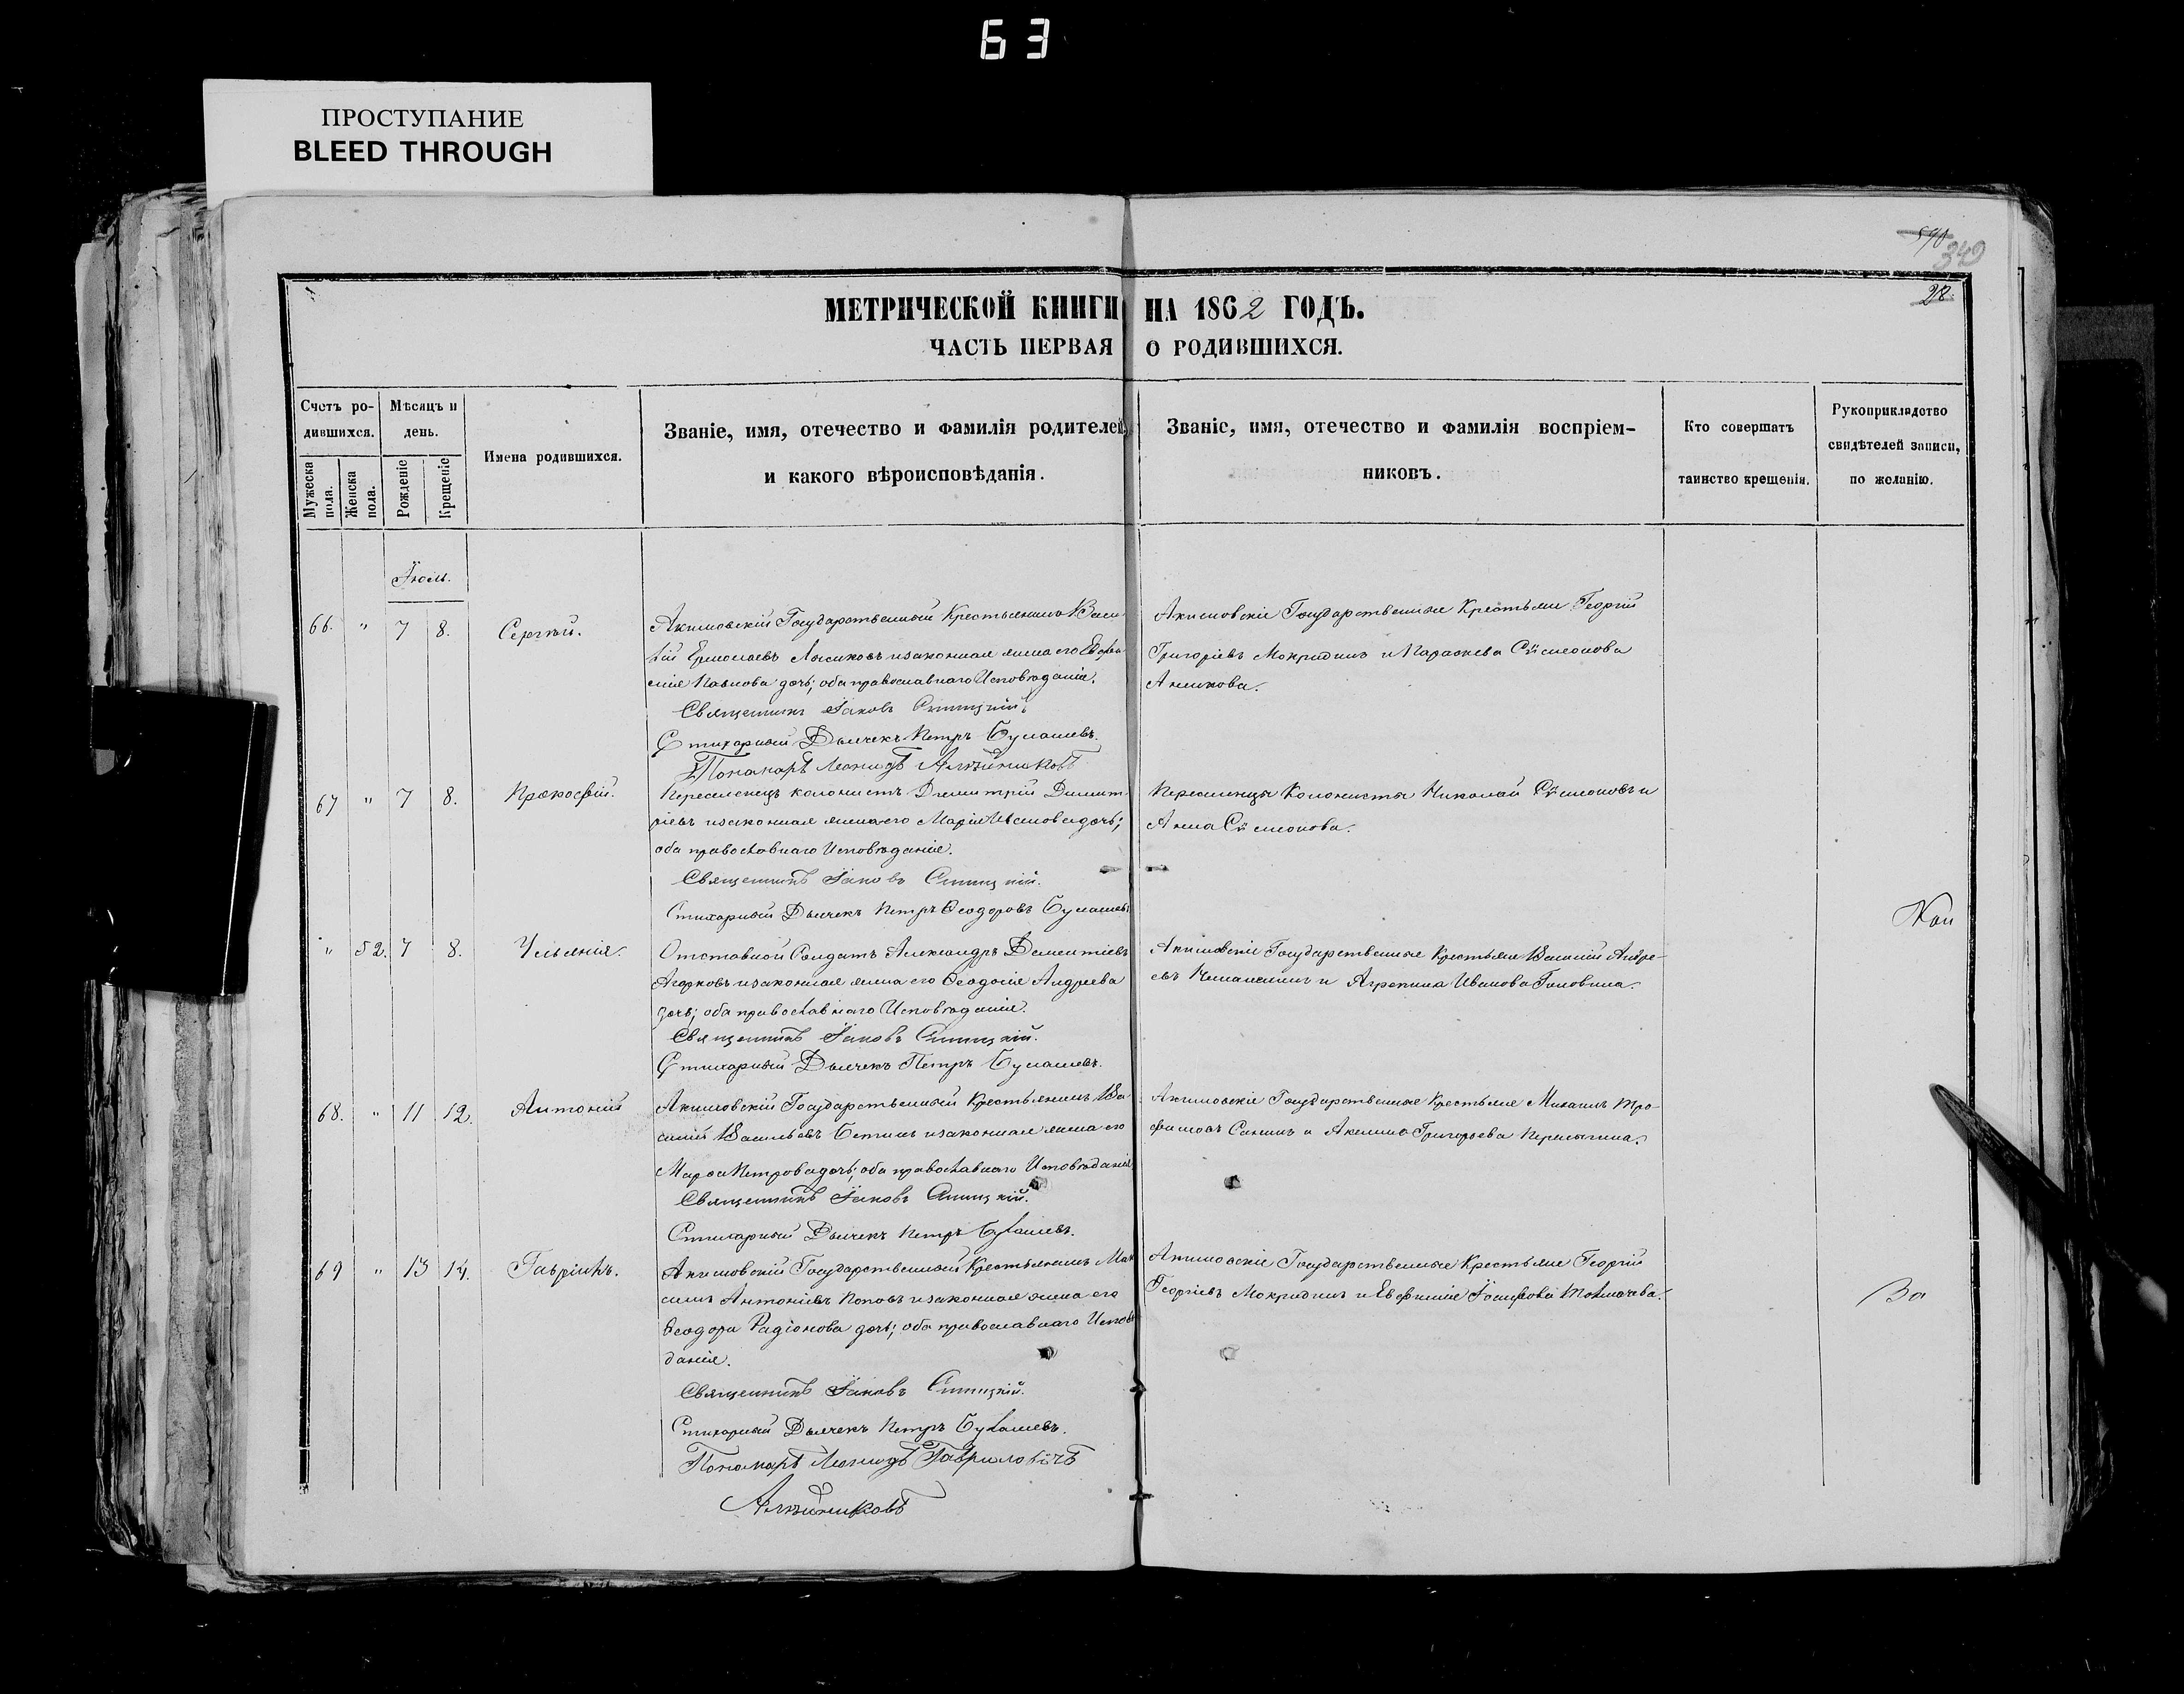 63
ПРОСТУПАНИЕ
BLEED THROUGH
349
28.
МЕТРИЧЕСКОЙ КНИГИ НА 1862 ГОДЪ.
ЧАСТЬ ПЕРВАЯ О РОДИВШИХСЯ.
Счетъ родившихся.
Мужеска пола.
Женска пола.
Мѣсяцъ и день.
Рожденіе
Крещеніе
Имена родившихся.
Званіе, имя, отечество и фамилія родителей,
и какого вѣроисповѣданія.
Званіе, имя, отечество и фамилія воспріем-
никовъ.
Кто совершатъ
таинство крещенія.
Рукоприкладство
свидѣтелей записи,
по желанію.
Іюль.
66. " 7 8. Сергѣй.
Акимовскій Государственный Крестьянинъ Васи-
лій Ермолаевъ изаконная жена его Евфи-
мія Павлова дочь; оба православнаго Исповѣданія.
Священникъ Іаковъ
Стихарный Дьячекъ Петръ Булашевъ.
Пономарь Леонидъ Алѣйниковъ
Акимовскіе Государственные Крестьяне Георгій
Григоріевъ Мокридинъ и Параскева Сѵмеонова
Аникова.
67 " 7 8. Прокофій.
Переселенецъ колонистъ Димитрій Димит-
ріевъ изаконная жена его Марія Иванова дочь;
оба православнаго Исповѣданія.
Священникъ Іаковъ
Стихарный Дьячекъ Петръ Ѳеодоровъ Булашевъ
Переселенцы Колонисты Николай Сѵмеоновъ и
Анна Сѵмеонова.
" 52. 7 8. Ульянія.
Отставной Солдатъ Александръ Дементіевъ
Агарковъ изаконная жена его Ѳеодосія Андреева
дочь; оба православнаго Исповѣданія.
Священникъ Іаковъ
Стихарный Дьячекъ Петръ Булашевъ.
Акимовскіе Государственные Крестьяне Василій Андре-
евъ и Агрепина Иванова Головина.
68. " 11 12. Антоній
Акимовскій Государственный Крестьянинъ Ва-
силій Васильевъ изаконная жена его
Марѳа Петрова дочь; оба православнаго Исповѣданія.
Священникъ Іаковъ
Стихарный Дьячекъ Петръ Булашевъ.
Акимовскіе Государственные Крестьяне Михаилъ Тро-
фимовъ Санинъ и Акелина Григорьева Перелыгина.
69 " 13 14. Гавріилъ.
Акимовскій Государственный Крестьянинъ Мак-
симъ Антоніевъ Поповъ изаконная жена его
Ѳеодора Радіонова дочь; оба православнаго Исповѣ-
данія.
Священникъ Іаковъ
Стихарный Дьячекъ Петръ Булашевъ.
Пономарь Леонидъ Гавриловичъ
Алѣйниковъ
Акимовскіе Государственные Крестьяне Георгій
Георгіевъ Мокридинъ и Евфимія Іосифова Толмачева.